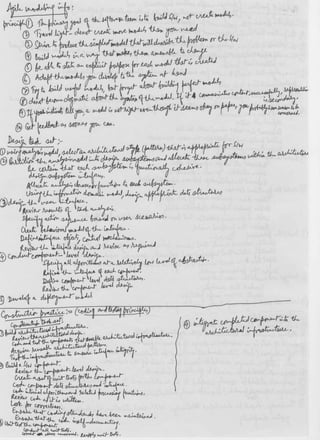 Agile modeling info:
principle ① The primary goal of the software team is to build s/w, not create models.
② Travel light - don't create more models than you need
③ Strive to produce the simplest model that will describe the problem or the s/w
④ Build models in a way that makes them amenable to change
⑤ Be able to state an explicit purpose for each model that is created
⑥ Adapt the models you develop to the system at hand
⑦ Try to build useful models, but forget about building perfect models
⑧ Don't become dogmatic about the syntax of the model. If it communicates content successfully, representation
is secondary.
⑨ If your instincts tell you a model is not right even though it seems okay on paper, you probably have reason to be
concerned.
⑩ Get feedback as soon as you can.
Design task set:-
① using analysis model, select an architectural style (pattern) that is appropriate for s/w
② Partition the analysis model into design subsystems and allocate these subsystems within the architecture
be certain that each subsystem is functionally cohesive.
design subsystem interfaces.
Allocate analysis classes or functions to each subsystem.
Using the information domain model, design appropriate data structures
③ design the user interface.
Review results of task analysis
Specify action sequence based on user scenarios.
Create behavioural model of the interface.
Define interface objects, control mechanisms.
Review the interface design and revise as required
④ Conduct component-level design.
Specify all algorithms at a relatively low level of abstraction.
Refine the interface of each component
Define component level data structures.
Review the component level design.
⑤ Develop a deployment model
Construction practice is:- (coding and testing principles)
Construction task set:
① Build architectural infrastructure.
Review the architectural design.
Code and test the components that enable architectural infrastructure.
Acquire reusable architectural patterns.
Test the infrastructure to ensure interface integrity.
② Build a s/w component.
Review the component-level design.
Create a set of unit tests for the component
Code component data structures and interface
Code internal algorithms and related processing functions.
Review code as it is written.
Look for correctness.
Ensure that coding standards have been maintained.
Ensure that the code is self-documenting.
③ Unit test the component
Conduct all unit tests.
Correct errors uncovered. Reapply unit tests.
④ integrate completed component into the
architectural infrastructure.